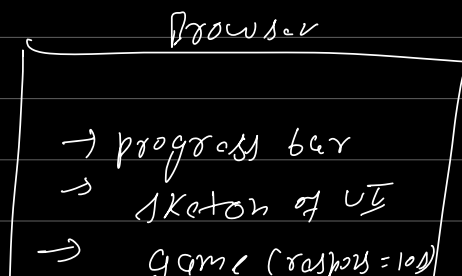 Browser
→ progress bar
→ sketon of UI
→ game (respors = 10s)